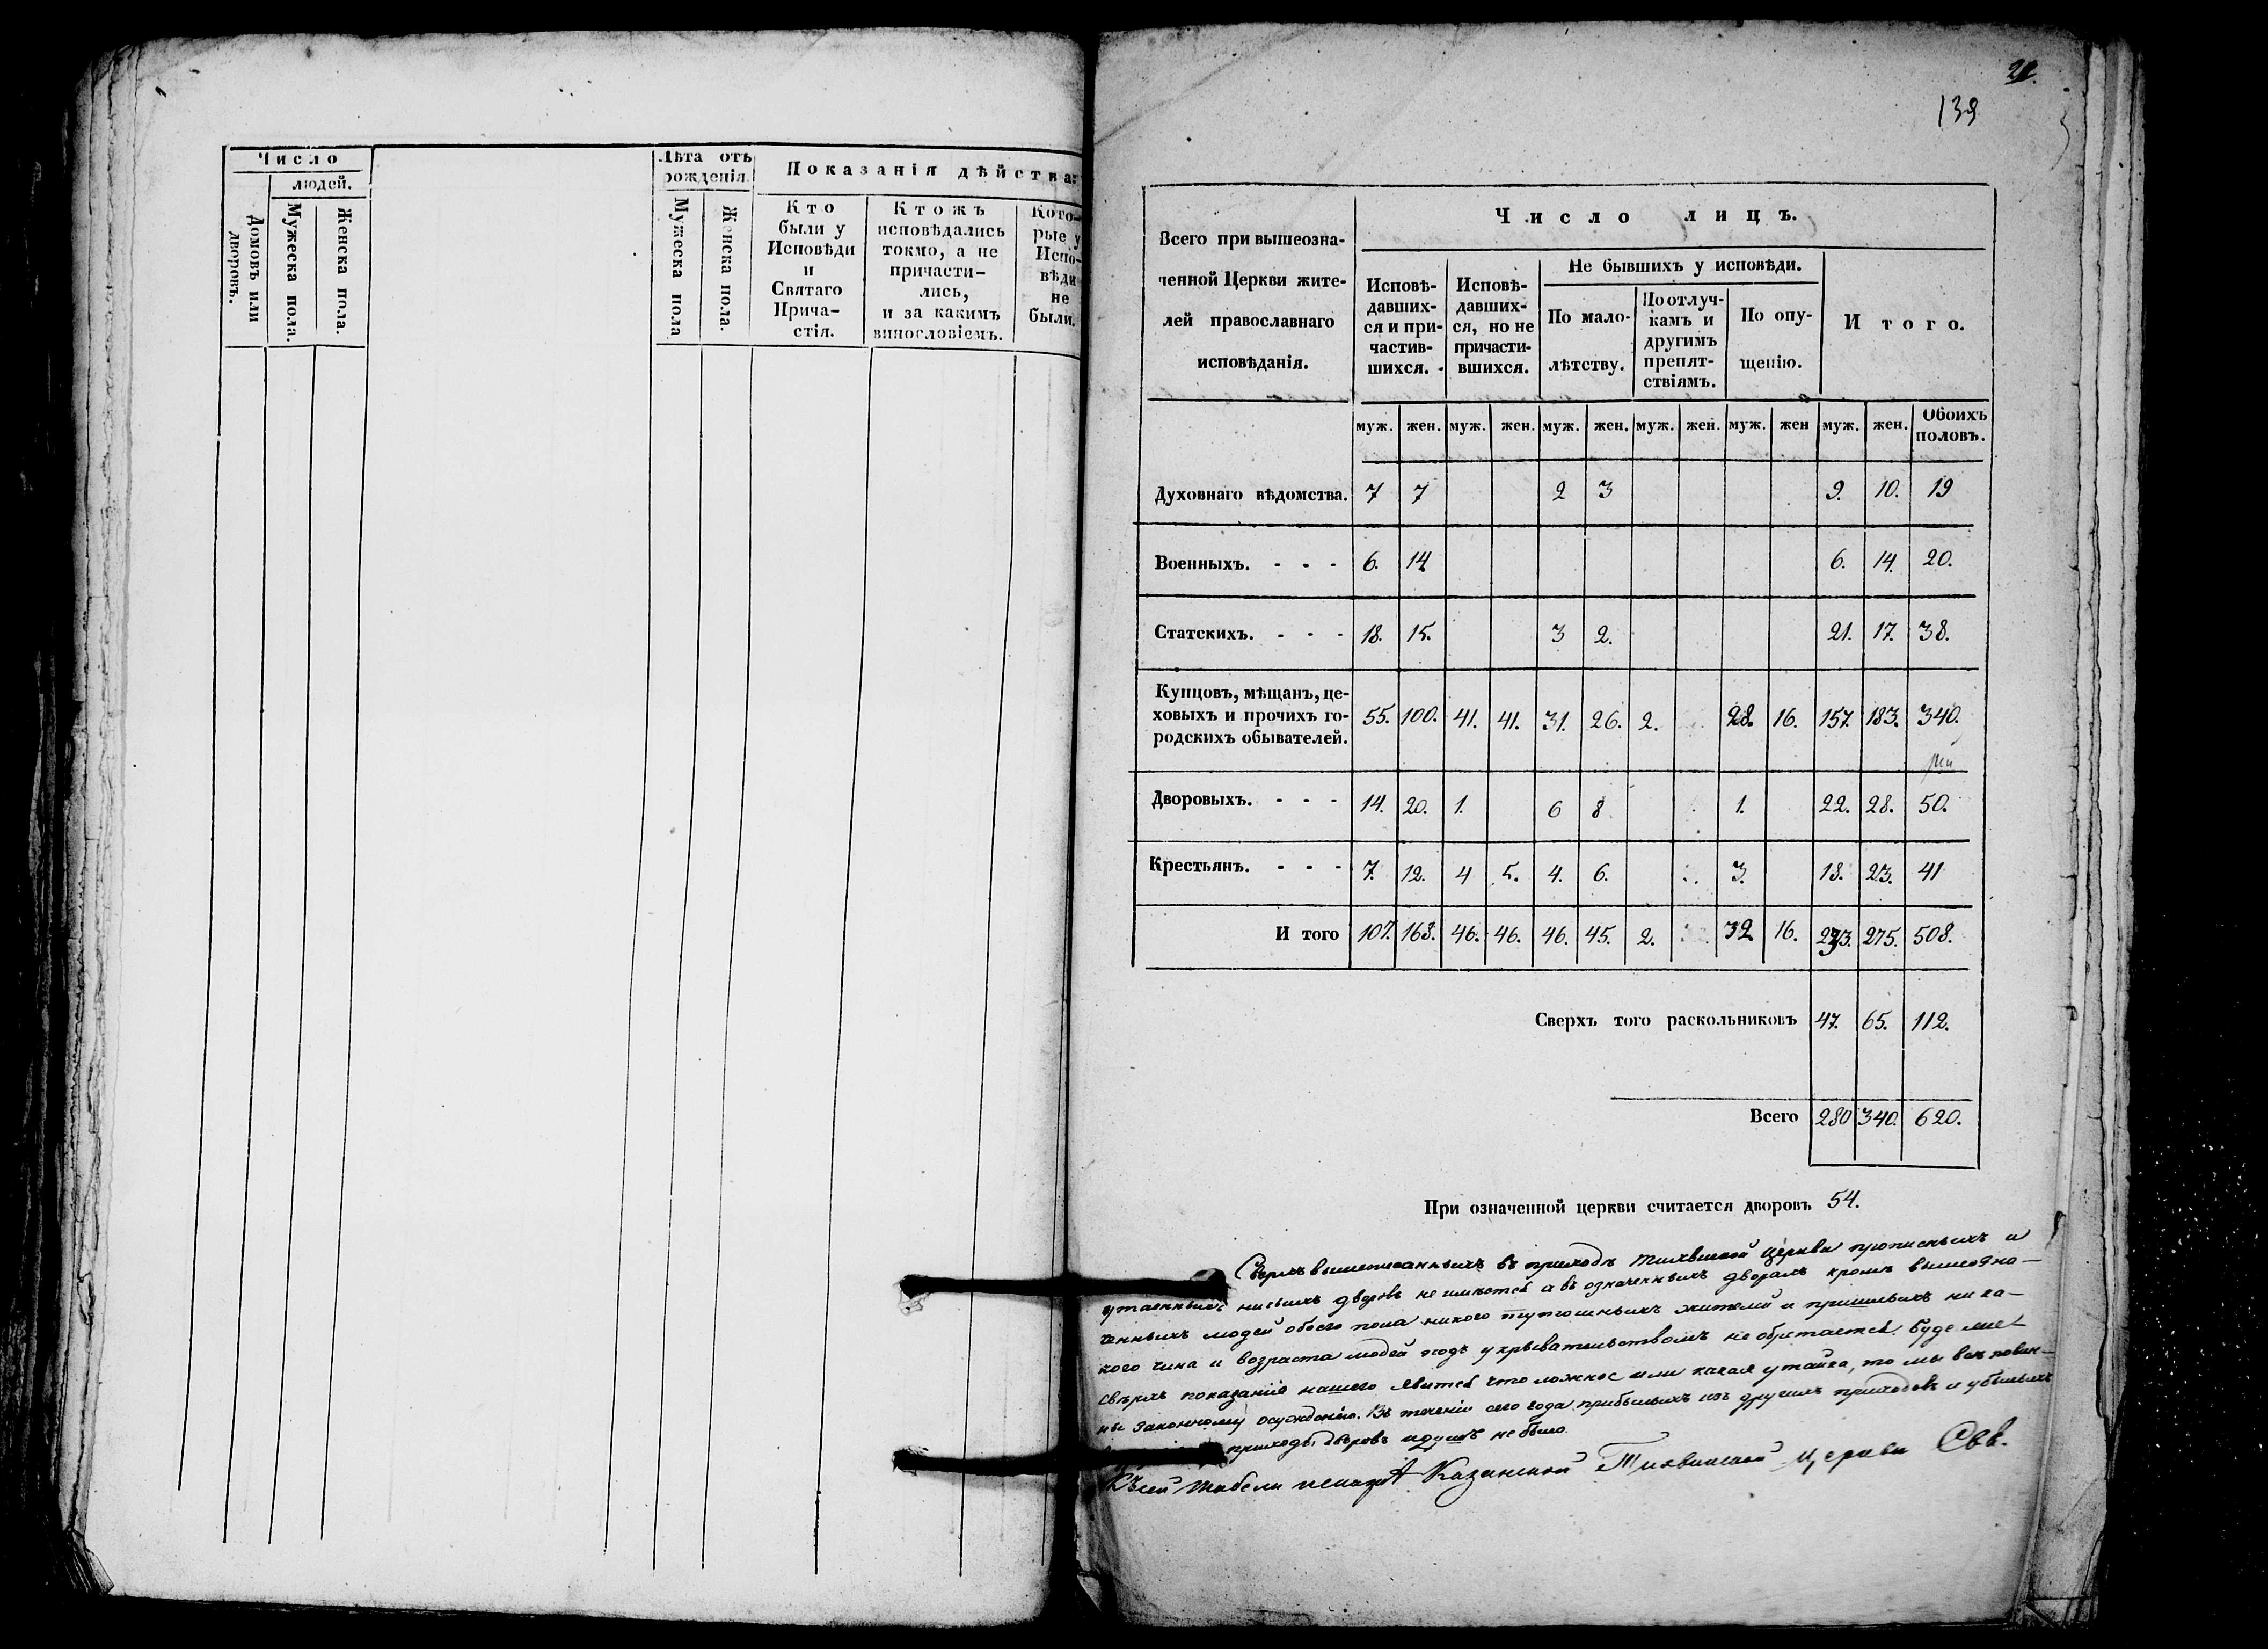 Число
людей.
Домовъ или дворовъ.
Мужеска пола.
Женска пола.
Лѣта отъ рожденія.
Мужеска пола
Женска пола.
Показанія дѣйства:
Кто были у Исповѣди и Святаго Прича-стія.
Ктожъ исповѣдались токмо, а не причасти-лись, и за какимъ винословіемъ.
Кото-рые у Испо-вѣди не были.
21.
139
Всего при вышеозна-
ченной Церкви жите-
лей православнаго
исповѣданія.
Число лицъ.
Исповѣ-давших-ся и при-частив-шихся.
Исповѣ-давших-ся, но не причасти-вшихся.
Не бывшихъ у исповѣди.
По мало-лѣтству.
По отлуч-камъ и другимъ препят-ствіямъ.
По опу-щенію.
Итого.
муж. жен. муж. жен. муж. жен. муж. жен. муж. жен муж. жен. Обоихъ половъ.
Духовнаго вѣдомства. 7 7 2 3 9. 10. 19
Военныхъ. - - - 6. 14 6. 14. 20.
Статскихъ. - - - 18. 15. 3 2. 21. 17. 38.
Купцовъ, мѣщанъ, це-
ховыхъ и прочихъ го-
родскихъ обывателей. 55. 100. 41. 41. 31. 26. 2. 28. 16. 157. 183. 340.
Дворовыхъ. - - - 14. 20. 1. 6 8 1. 22. 28. 50.
Крестьянъ. - - - 7. 12. 4 5. 4. 6. 3. 18. 23. 41
И того 107. 168. 46. 46. 46. 45. 2. 32 16. 233. 275. 508.
Сверхъ того раскольниковъ 47. 65. 112.
Всего 280 340. 620.
При означенной церкви считается дворовъ 54.
Сверхъ вышеписанныхъ въ приходѣ Тихвинской Церкви прописныхъ и
утаенныхъ никакихъ дворовъ не имѣется а въ означенныхъ дворахъ кромѣ вышеозна-
ченныхъ людей обоего пола никого тутошныхъ жителей и пришлыхъ ника-
кого чина и возраста людей подъ укрывательствомъ не обретается. Буде же
сверхъ показанія нашего явится что ложное или какая утайка, то мы всѣ повин-
ны законному осужденію. Въ теченіи сего года прибылыхъ изъ другихъ приходовъ и убылыхъ
приходы дворовъ и душъ не было.
Къ сей табели Казанской Тихвинской Церкви Свв.